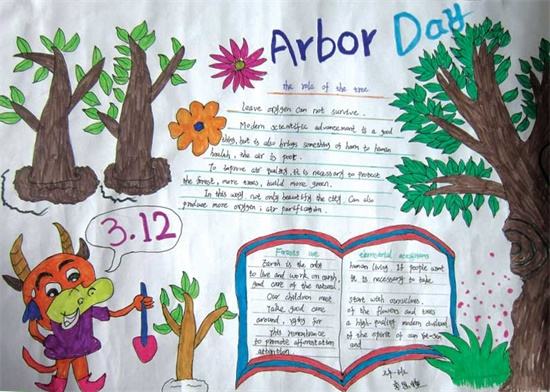 Arbor Day
the role of the tree
leave oxygen can not survive.
Modern scientific advancement is a good
thing, but is also brings something of harm to human
health, the air is poor.
To improve air quality, it is necessary to protect
the forest, more trees, build more green.
In this way, not only beautify the city. Can also
produce more oxygen; air purification.
3.12
Forests are
Earth is the only
to live and work on earth,
good care of the natural
Our children must
Take good care
around,
for
This remembrance
to promote afforestation
attention.
human living. If people want
it is necessary to take
start with ourselves.
of the flowers and trees
a high-quality modern
of the spirit of
and